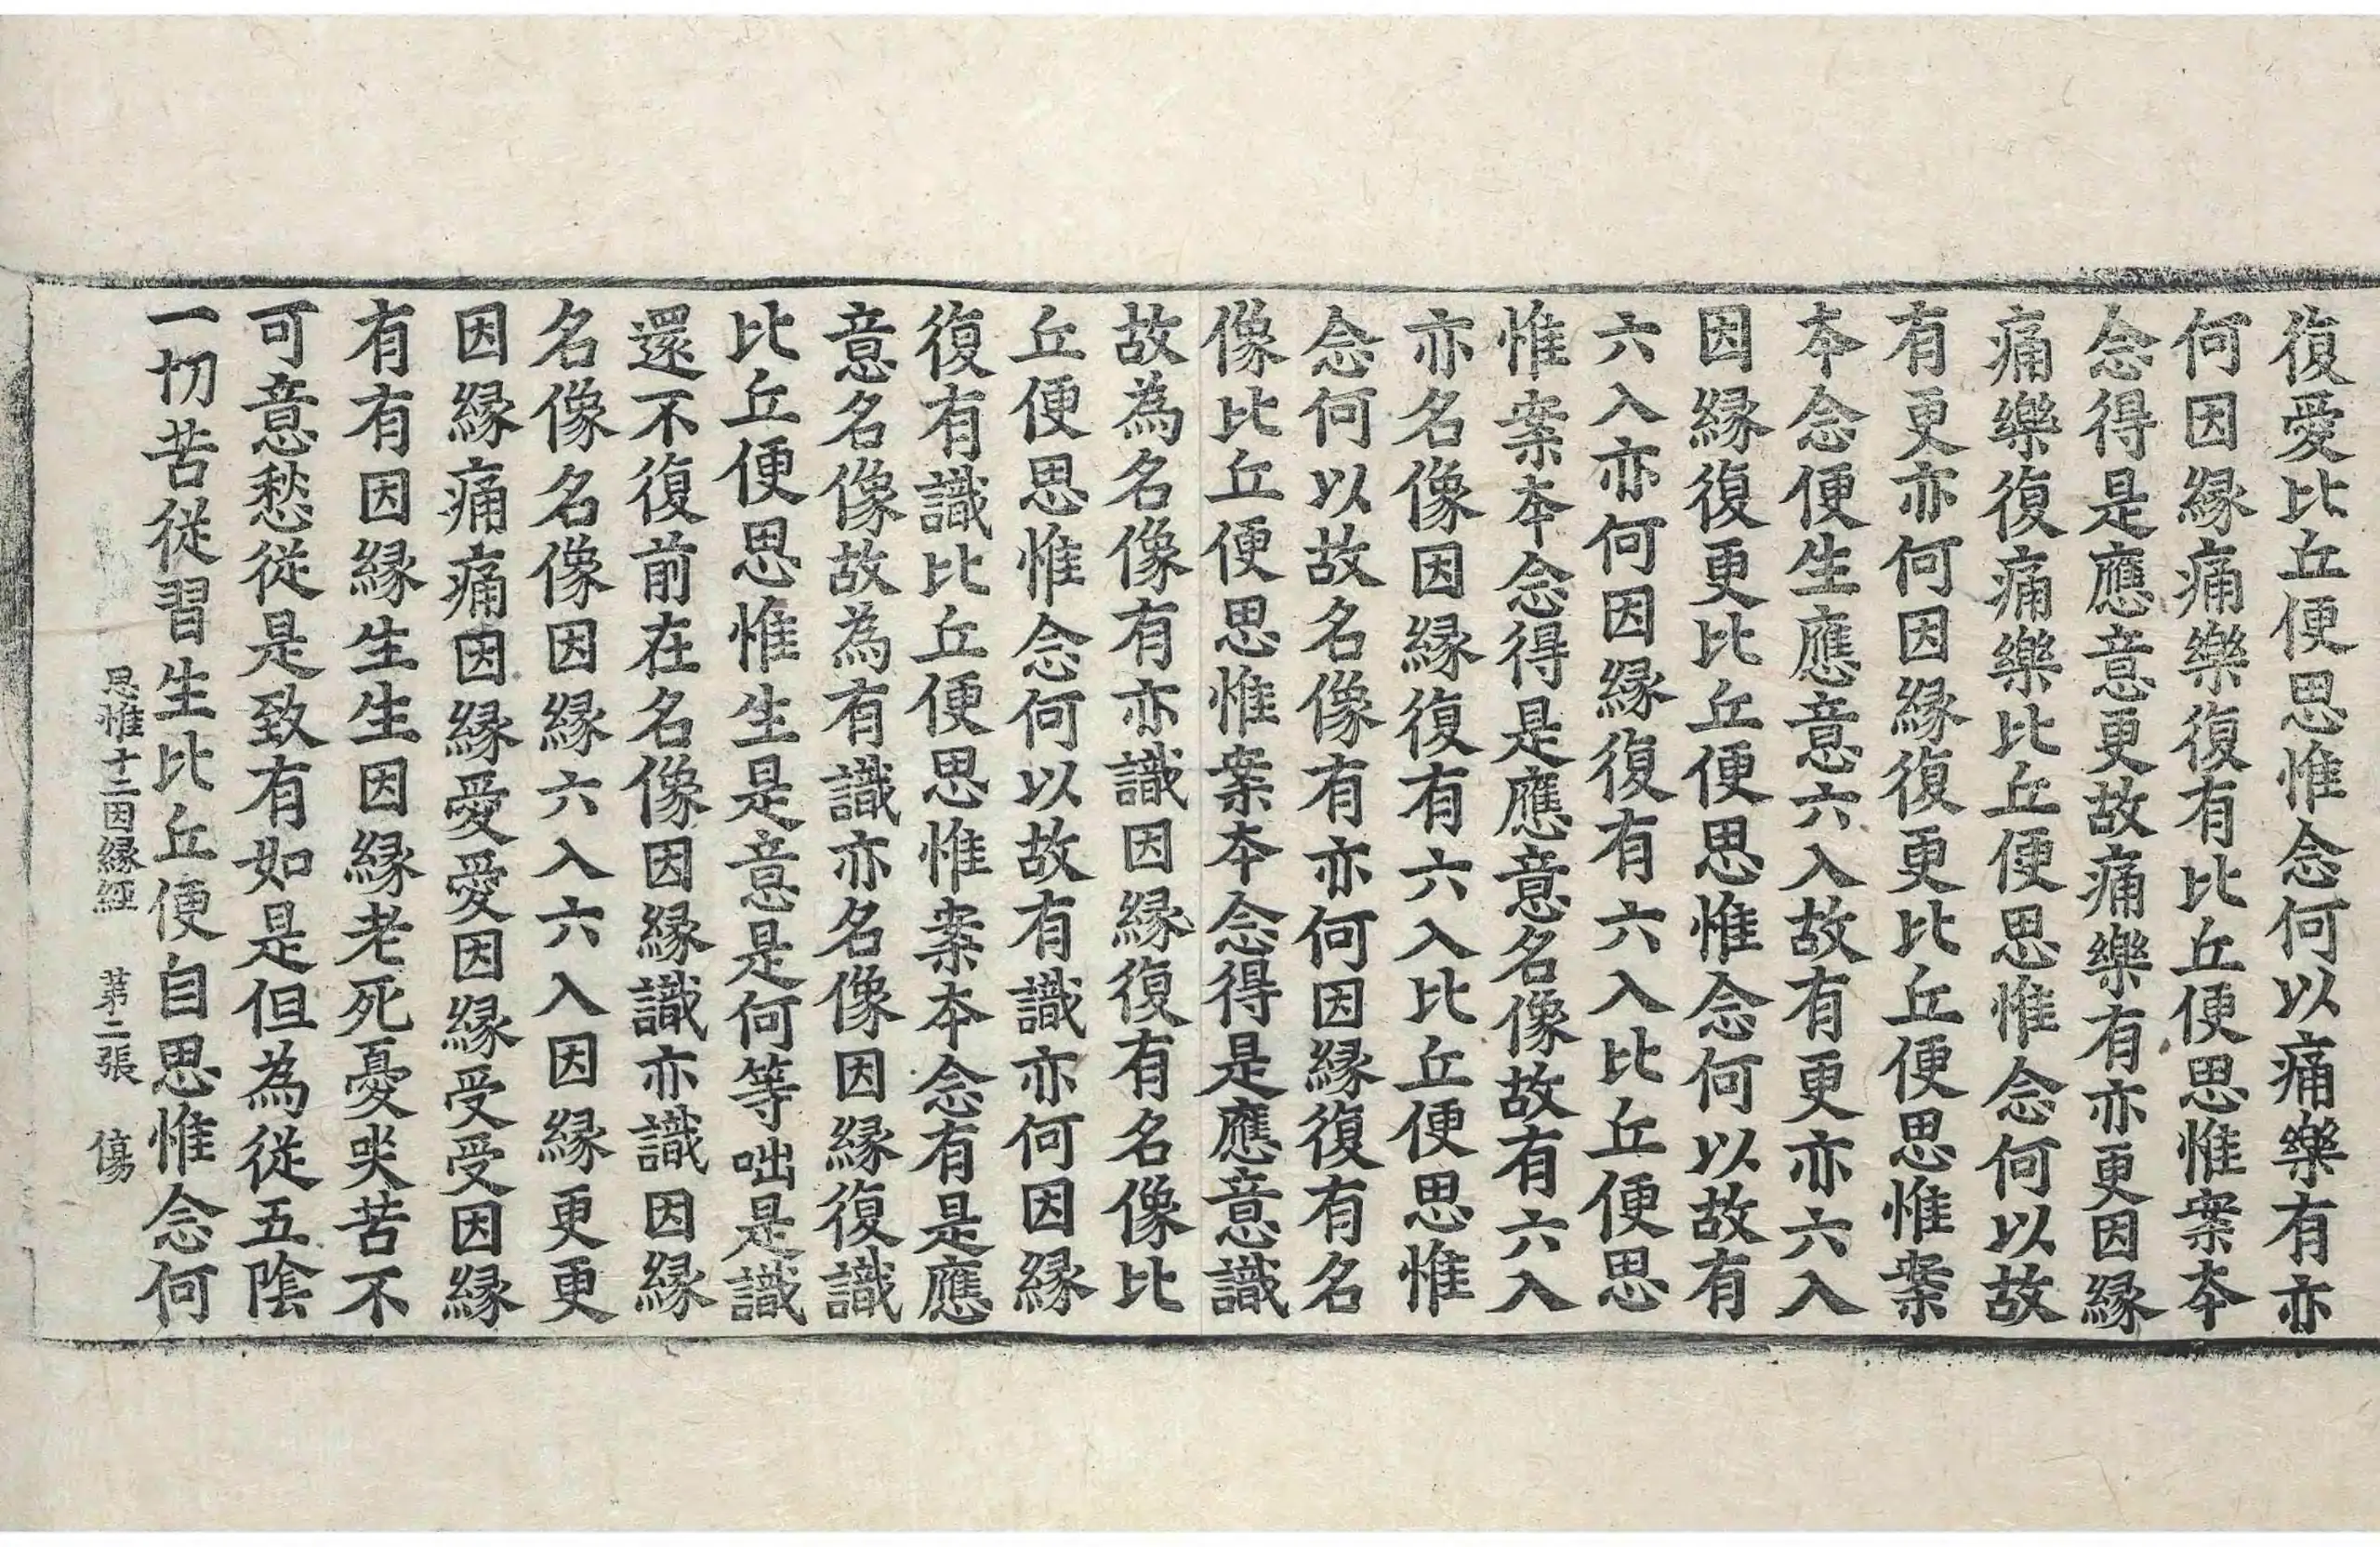 復愛比丘便思惟念何以痛樂有亦
何因縁痛樂復有比丘便思惟案夲
念得是應意更故痛樂有亦更因縁
痛樂復痛樂比丘便思惟念何以故
有更亦何因縁復更比丘便思惟案
夲念便生應意六入故有更亦六入
因縁復更比丘便思惟念何以故有
六入亦何因縁復有六入比丘便思
惟案夲念得是應意名像故有六入
亦名像因縁復有六入比丘便思惟
念何以故名像有亦何因縁復有名
像比丘便思惟案夲念得是應意識
故為名像有亦識因縁復有名像比
丘便思惟念何以故有識亦何因縁
復有識比丘便思惟案夲念有是應
意名像故為有識亦名像因縁復識
比丘便思惟生是意是何等咄是識
還不復前在名像因縁識亦識因縁
名像名像因縁六入六入因縁更更
因縁痛痛因縁愛愛因縁受受因縁
有有因縁生生因縁老死憂哭苦不
可意愁從是致有如是但為從五陰
一切苦從習生比丘便自思惟念何
思惟十二因縁經 苐二張 傷